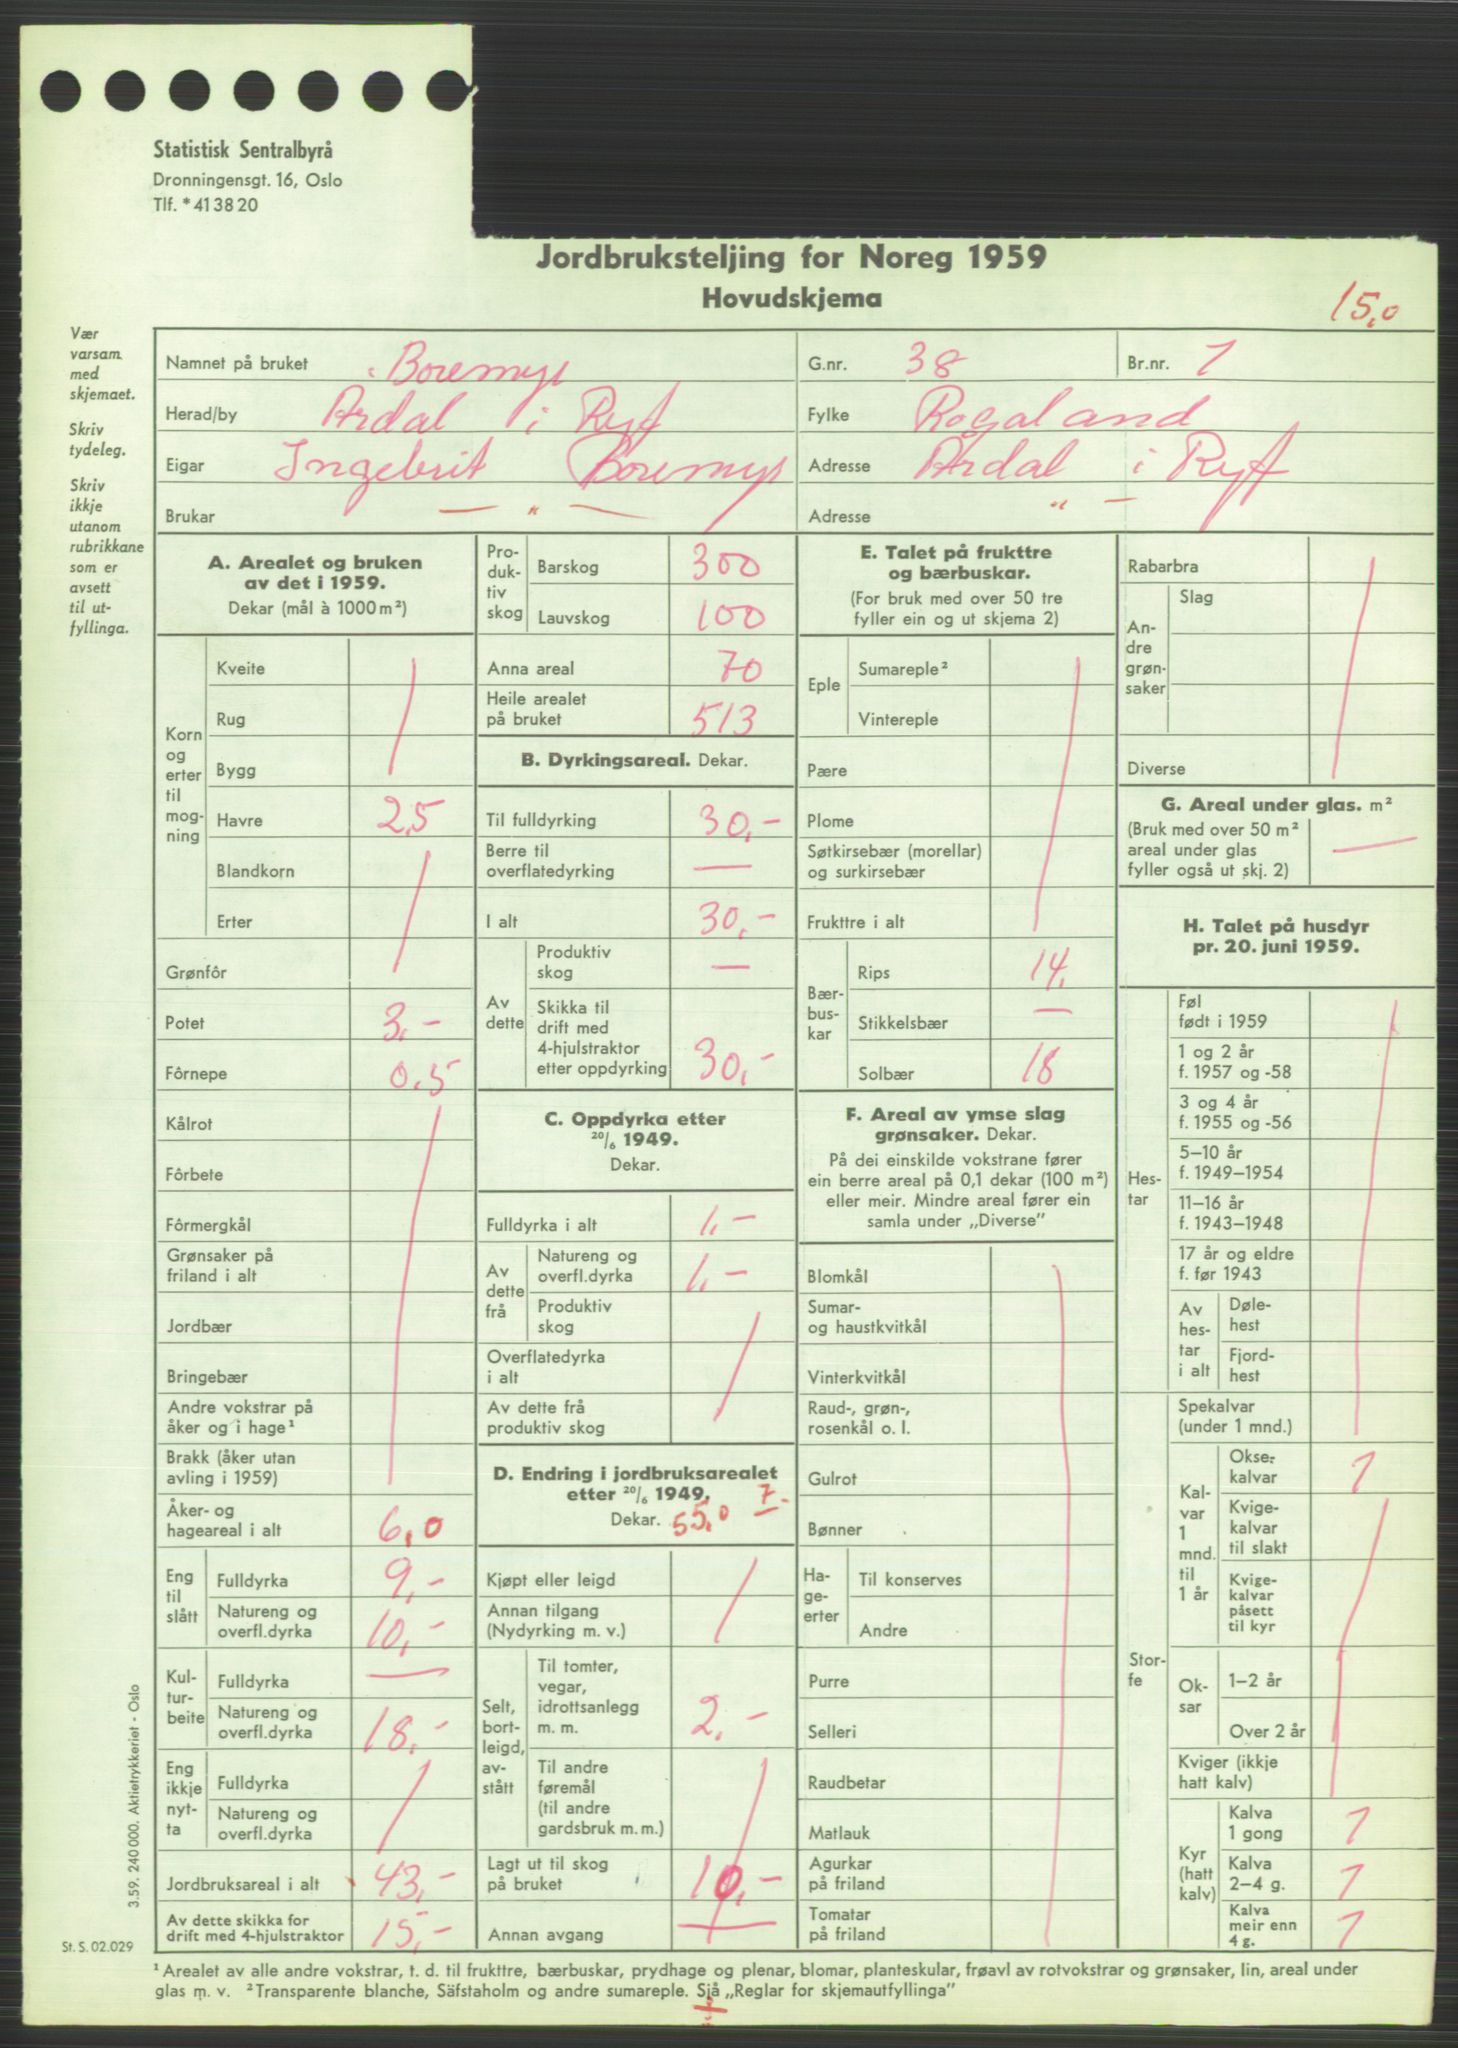 Statistisk Sentralbyrå
Dronningensgt. 16, Oslo
Tlf. * 41 38 20
Jordbruksteljing for Noreg 1959
Hovudskjema
15,0
Vær
varsam
med
skjemaet.
Skriv
tydeleg.
Skriv
ikkje
utanom
rubrikkane
som er
avsett
til ut-
fyllinga.
Namnet på bruket Boremyr G.nr. 38 Br.nr. 7
Herad/by Årdal i Ryf Fylke Rogaland
Eigar Ingebrit Boremyr Adresse Årdal i Ryf
Brukar — " — Adresse " —
A. Arealet og bruken
av det i 1959.
Dekar (mål à 1000 m²)
Korn og erter til mogning
Kveite
Rug
Bygg
Havre 2,5
Blandkorn
Erter
Grønfôr
Potet 3,-
Fôrnepe 0,5
Kålrot
Fôrbete
Fôrmergkål
Grønsaker på
friland i alt
Jordbær
Bringebær
Andre vokstrar på
åker og i hage¹
Brakk (åker utan
avling i 1959)
Åker- og
hageareal i alt 6,0
Eng til slått
Fulldyrka 9,-
Natureng og
overfl.dyrka 10,-
Kulturbeite
Fulldyrka —
Natureng og
overfl.dyrka 18,-
Eng ikkje nytta
Fulldyrka
Natureng og
overfl.dyrka
Jordbruksareal i alt 43,-
Av dette skikka for
drift med 4-hjulstraktor 15,-
Produktiv skog
Barskog 300
Lauvskog 100
Anna areal 70
Heile arealet
på bruket 513
B. Dyrkingsareal. Dekar.
Til fulldyrking 30,-
Berre til
overflatedyrking —
I alt 30,-
Av dette
Produktiv
skog —
Skikka til
drift med
4-hjulstraktor
etter oppdyrking 30,-
C. Oppdyrka etter
20/6 1949.
Dekar.
Fulldyrka i alt 1,-
Av dette frå
Natureng og
overfl.dyrka 1,-
Produktiv
skog
Overflatedyrka
i alt
Av dette frå
produktiv skog
D. Endring i jordbruksarealet
etter 20/6 1949. 7-
Dekar. 55,0
Kjøpt eller leigd
Annan tilgang
(Nydyrking m. v.)
Selt, bortleigd, avstått
Til tomter,
vegar,
idrottsanlegg
m. m. 2,-
Til andre
føremål
(til andre
gardsbruk m. m.)
Lagt ut til skog
på bruket 10,-
Annan avgang —
E. Talet på frukttre
og bærbuskar.
(For bruk med over 50 tre
fyller ein og ut skjema 2)
Eple
Sumareple²
Vintereple
Pære
Plome
Søtkirsebær (morellar)
og surkirsebær
Frukttre i alt
Bærbuskar
Rips 14,
Stikkelsbær —
Solbær 18
F. Areal av ymse slag
grønsaker. Dekar.
På dei einskilde vokstrane fører
ein berre areal på 0,1 dekar (100 m²)
eller meir. Mindre areal fører ein
samla under „Diverse”
Blomkål
Sumar-
og haustkvitkål
Vinterkvitkål
Raud-, grøn-,
rosenkål o. l.
Gulrot
Bønner
Hageerter
Til konserves
Andre
Purre
Selleri
Raudbetar
Matlauk
Agurkar
på friland
Tomatar
på friland
Rabarbra
Andre grønsaker
Slag
Diverse
G. Areal under glas. m²
(Bruk med over 50 m²
areal under glas
fyller også ut skj. 2) —
H. Talet på husdyr
pr. 20. juni 1959.
Hestar
Føl
født i 1959
1 og 2 år
f. 1957 og -58
3 og 4 år
f. 1955 og -56
5–10 år
f. 1949–1954
11–16 år
f. 1943–1948
17 år og eldre
f. før 1943
Av hestar i alt
Døle-
hest
Fjord-
hest
Storfe
Spekalvar
(under 1 mnd.)
Kalvar 1 mnd. til 1 år
Okse-
kalvar 1
Kvige-
kalvar
til slakt
Kvige-
kalvar
påsett
til kyr
Oksar
1–2 år
Over 2 år
Kviger (ikkje
hatt kalv)
Kyr (hatt kalv)
Kalva
1 gong 1
Kalva
2–4 g. 1
Kalva
meir enn
4 g. 1
3.59. 240 000. Aktietrykkeriet - Oslo
St. S. 02.029
¹ Arealet av alle andre vokstrar, t. d. til frukttre, bærbuskar, prydhage og plenar, blomar, planteskular, frøavl av rotvokstrar og grønsaker, lin, areal under
glas m. v. ² Transparente blanche, Säfstaholm og andre sumareple. Sjå „Reglar for skjemautfyllinga”